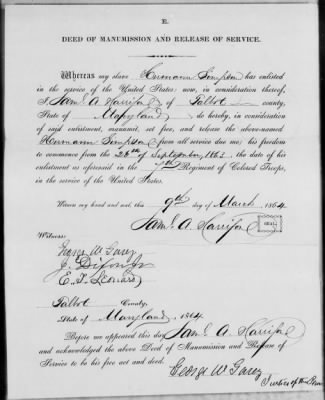 E.
DEED OF MANUMISSION AND RELEASE OF SERVICE.
Whereas my slave Hermann Simpson has enlisted
in the service of the United States: now, in consideration thereof,
I, Saml A Harrison of Talbot county,
State of Maryland do hereby, in consideration
of said enlistment, manumit, set free, and release the above-named
Hermann Simpson from all service due me; his freedom
to commence from the 26th of September 1863 the date of his
enlistment as aforesaid in the 7th Regiment of Colored Troops,
in the service of the United States.
Witness my hand and seal, this 9th day of March 1864
Saml. A. Harrison SEAL
Witness:
E. T. Leonard
Talbot County,
State of Maryland, 1864
Before me appeared this day Saml A Harrison
and acknowledged the above Deed of Manumission and Release of
Service to be his free act and deed.
George W
Justice of the